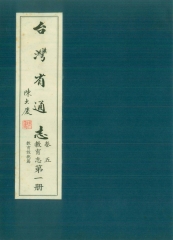 台灣省通志
陳大慶
卷五
教育志第一冊